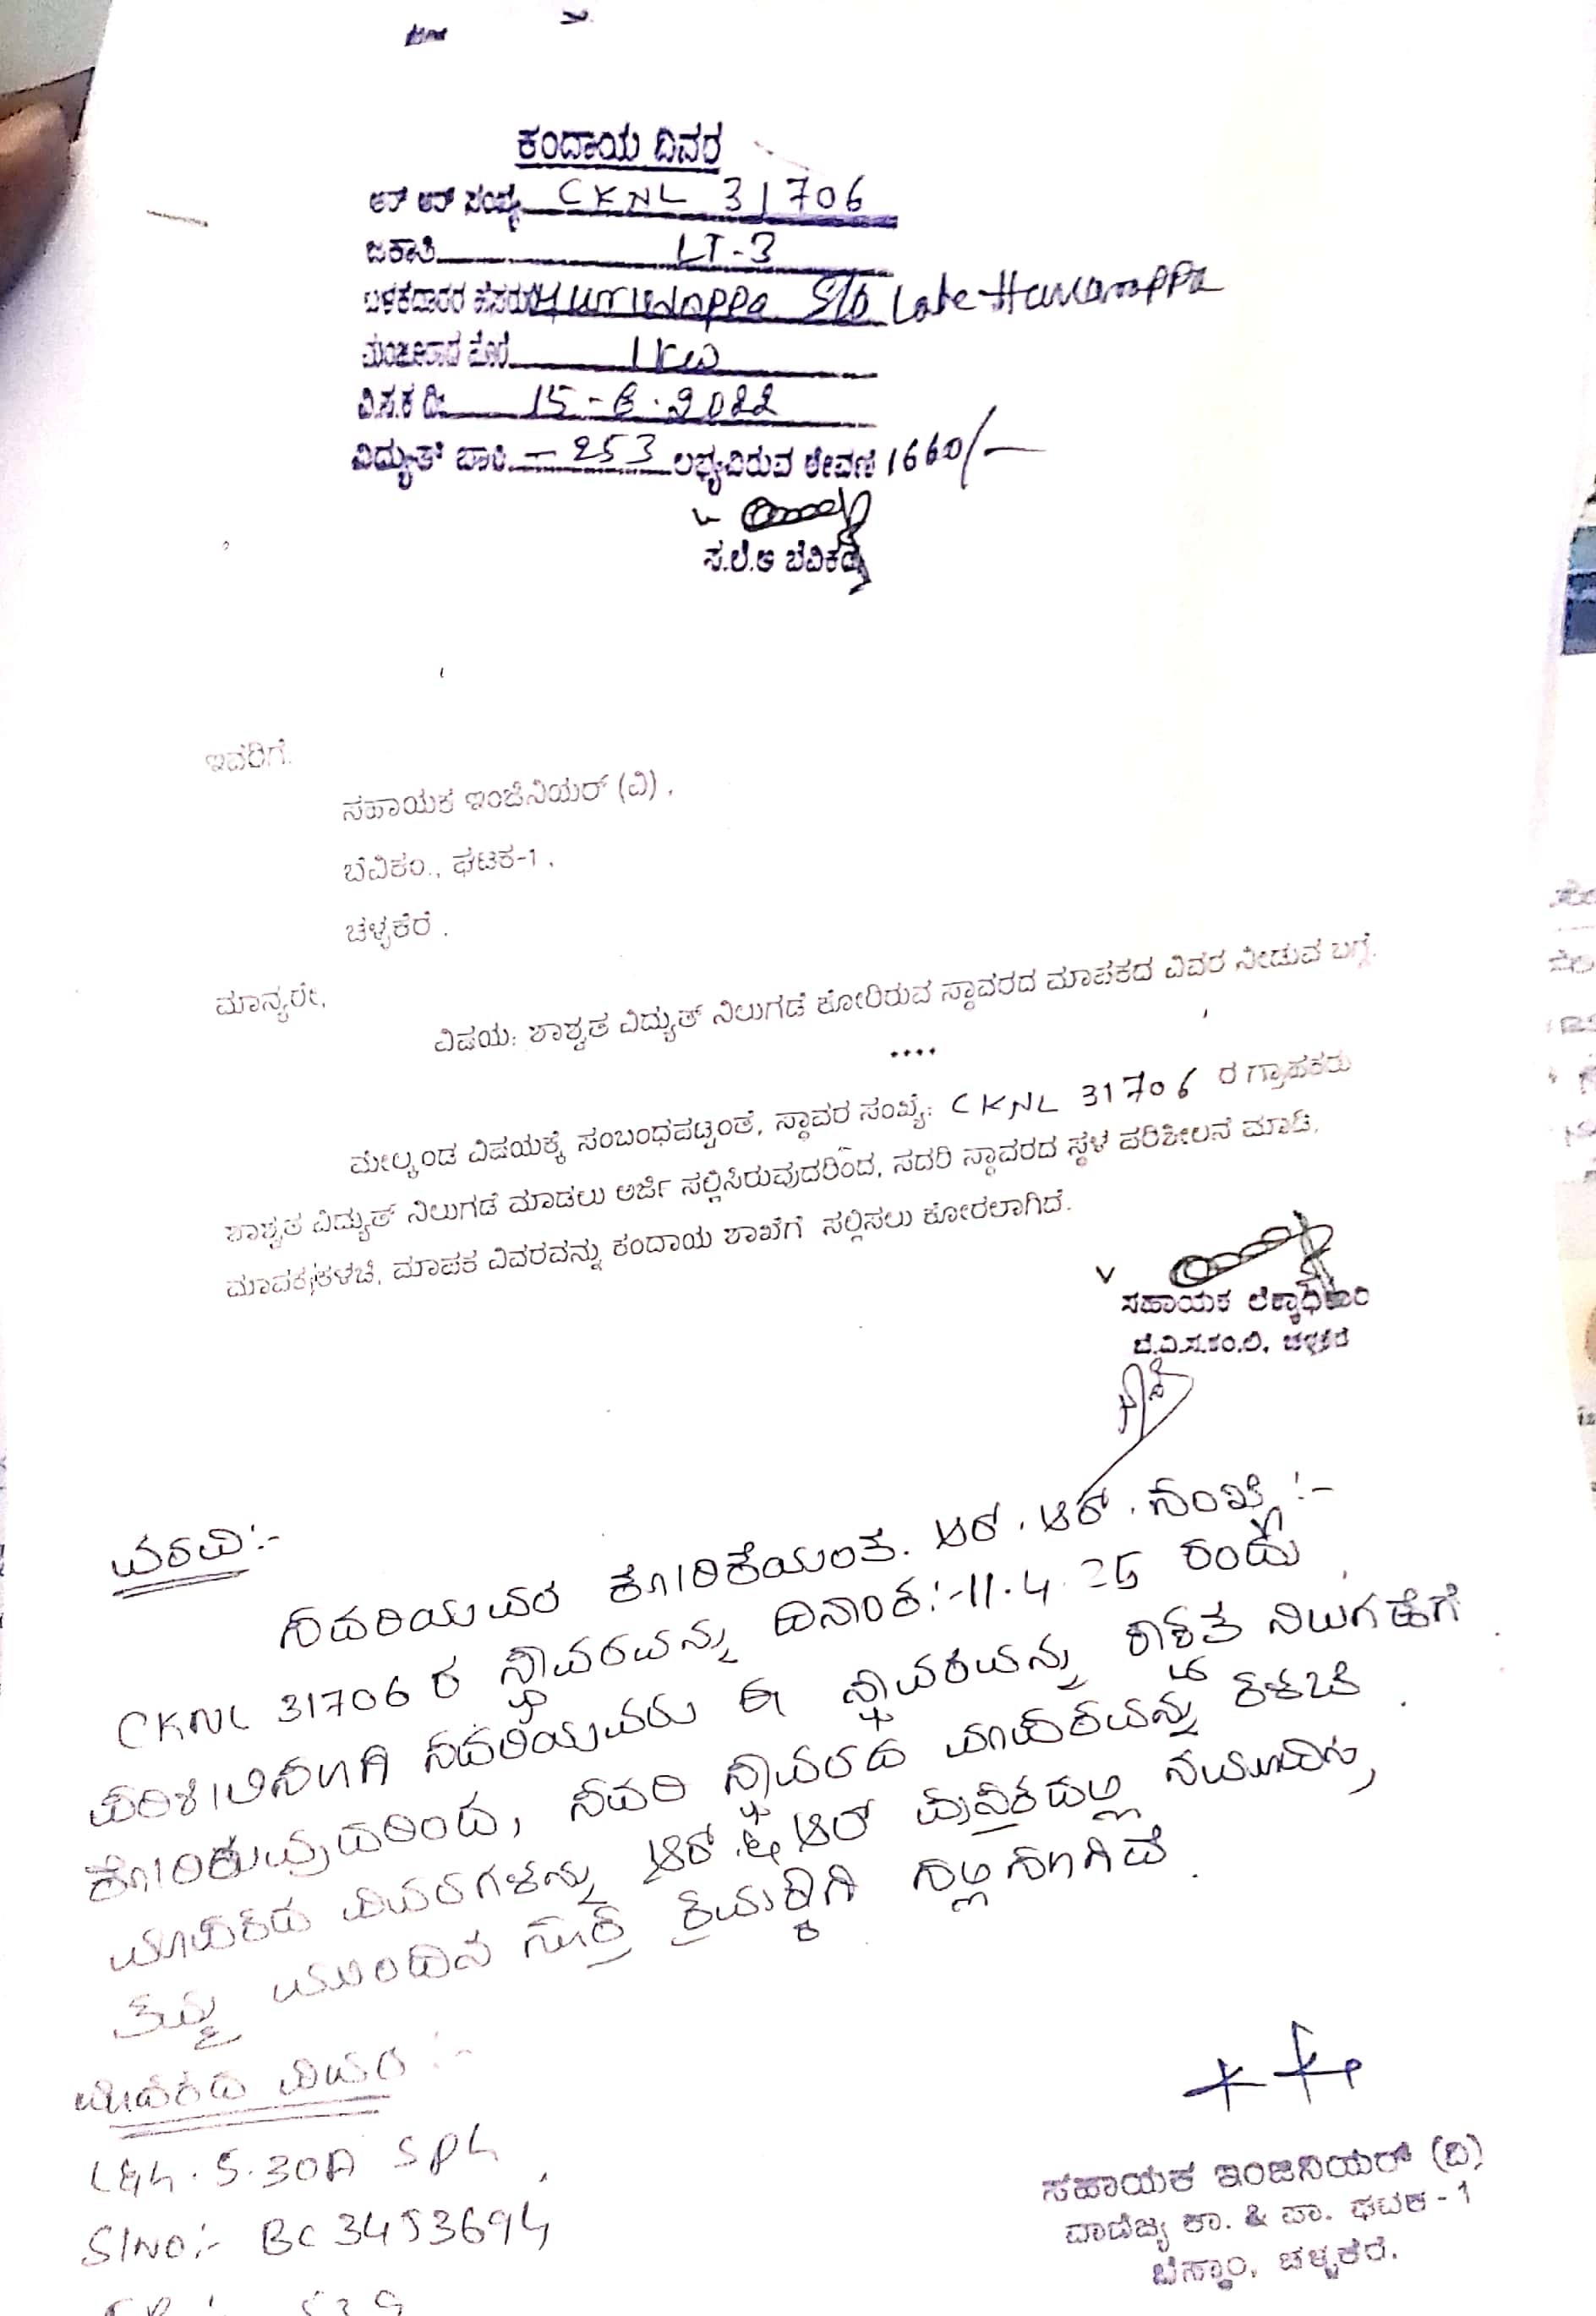 ಕಂದಾಯ ವಿವರ
ಆರ್ ಆರ್ ಸಂಖ್ಯೆ CKNL 31706
ಜಕಾತಿ LT-3
ಬಳಕೆದಾರರ ಹೆಸರು S/o Late
ಮಂಜೂರಾದ ಹೊರೆ 1KW
ವಿ.ಸ.ಕ ದಿ: 15-6-2022
ವಿದ್ಯುತ್ ಬಾಕಿ - 253 ಲಭ್ಯವಿರುವ ಠೇವಣಿ 1660/-
ಸ.ಲೆ.ಅ ಬೆವಿಕಂ
ಇವರಿಗೆ.
ಸಹಾಯಕ ಇಂಜಿನಿಯರ್ (ವಿ) ,
ಬೆವಿಕಂ., ಘಟಕ-1 ,
ಚಳ್ಳಕೆರೆ .
ಮಾನ್ಯರೇ,
ವಿಷಯ: ಶಾಶ್ವತ ವಿದ್ಯುತ್ ನಿಲುಗಡೆ ಕೋರಿರುವ ಸ್ಥಾವರದ ಮಾಪಕದ ವಿವರ ನೀಡುವ ಬಗ್ಗೆ.
****
ಮೇಲ್ಕಂಡ ವಿಷಯಕ್ಕೆ ಸಂಬಂಧಪಟ್ಟಂತೆ, ಸ್ಥಾವರ ಸಂಖ್ಯೆ: CKNL 31706 ರ ಗ್ರಾಹಕರು
ಶಾಶ್ವತ ವಿದ್ಯುತ್ ನಿಲುಗಡೆ ಮಾಡಲು ಅರ್ಜಿ ಸಲ್ಲಿಸಿರುವುದರಿಂದ, ಸದರಿ ಸ್ಥಾವರದ ಸ್ಥಳ ಪರಿಶೀಲನೆ ಮಾಡಿ,
ಮಾಪಕ ಕಳಚಿ, ಮಾಪಕ ವಿವರವನ್ನು ಕಂದಾಯ ಶಾಖೆಗೆ ಸಲ್ಲಿಸಲು ಕೋರಲಾಗಿದೆ.
ಸಹಾಯಕ ಲೆಕ್ಕಾಧಿಕಾರಿ
ಬೆ.ವಿ.ಸ.ಕಂ.ಲಿ, ಚಳ್ಳಕೆರೆ
ವರದಿ:-
ಸದರಿಯವರ ಕೋರಿಕೆಯಂತೆ. ಆರ್.ಆರ್.ಸಂಖ್ಯೆ:-
CKNL 31706 ರ ಸ್ಥಾವರವನ್ನು ದಿನಾಂಕ:-11.4.25 ರಂದು
ಪರಿಶೀಲಿಸಲಾಗಿ ಸದರಿಯವರು ಈ ಸ್ಥಾವರವನ್ನು ಶಾಶ್ವತ ನಿಲುಗಡೆಗೆ
ಕೋರಿರುವುದರಿಂದ, ಸದರಿ ಸ್ಥಾವರದ ಮಾಪಕವನ್ನು ಕಳಚಿ
ಮಾಪಕದ ವಿವರಗಳನ್ನು ಆರ್.ಆರ್ ಪುಸ್ತಕದಲ್ಲಿ ನಮೂದಿಸಿ,
ತಮ್ಮ ಮುಂದಿನ ಸೂಕ್ತ ಕ್ರಮಕ್ಕಾಗಿ ಸಲ್ಲಿಸಲಾಗಿದೆ.
ಮಾಪಕದ ವಿವರ:-
L&G. 5-30A
Sl No:- BC3453694
ಸಹಾಯಕ ಇಂಜಿನಿಯರ್ (ವಿ)
ವಾಣಿಜ್ಯ ಕಾ. & ಪಾ. ಘಟಕ - 1
ಬೆಸ್ಕಾಂ, ಚಳ್ಳಕೆರೆ.